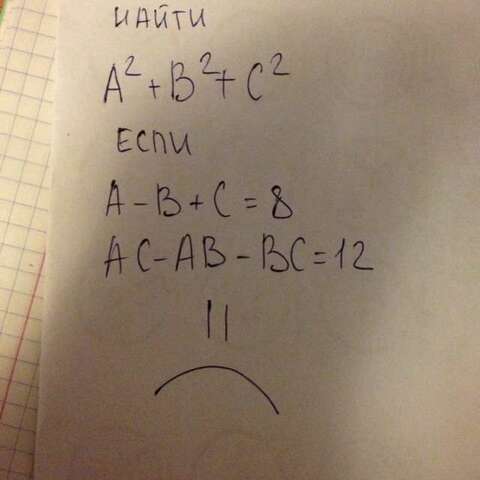 НАЙТИ
A² + B² + C²
ЕСЛИ
A - B + C = 8
AC - AB - BC = 12